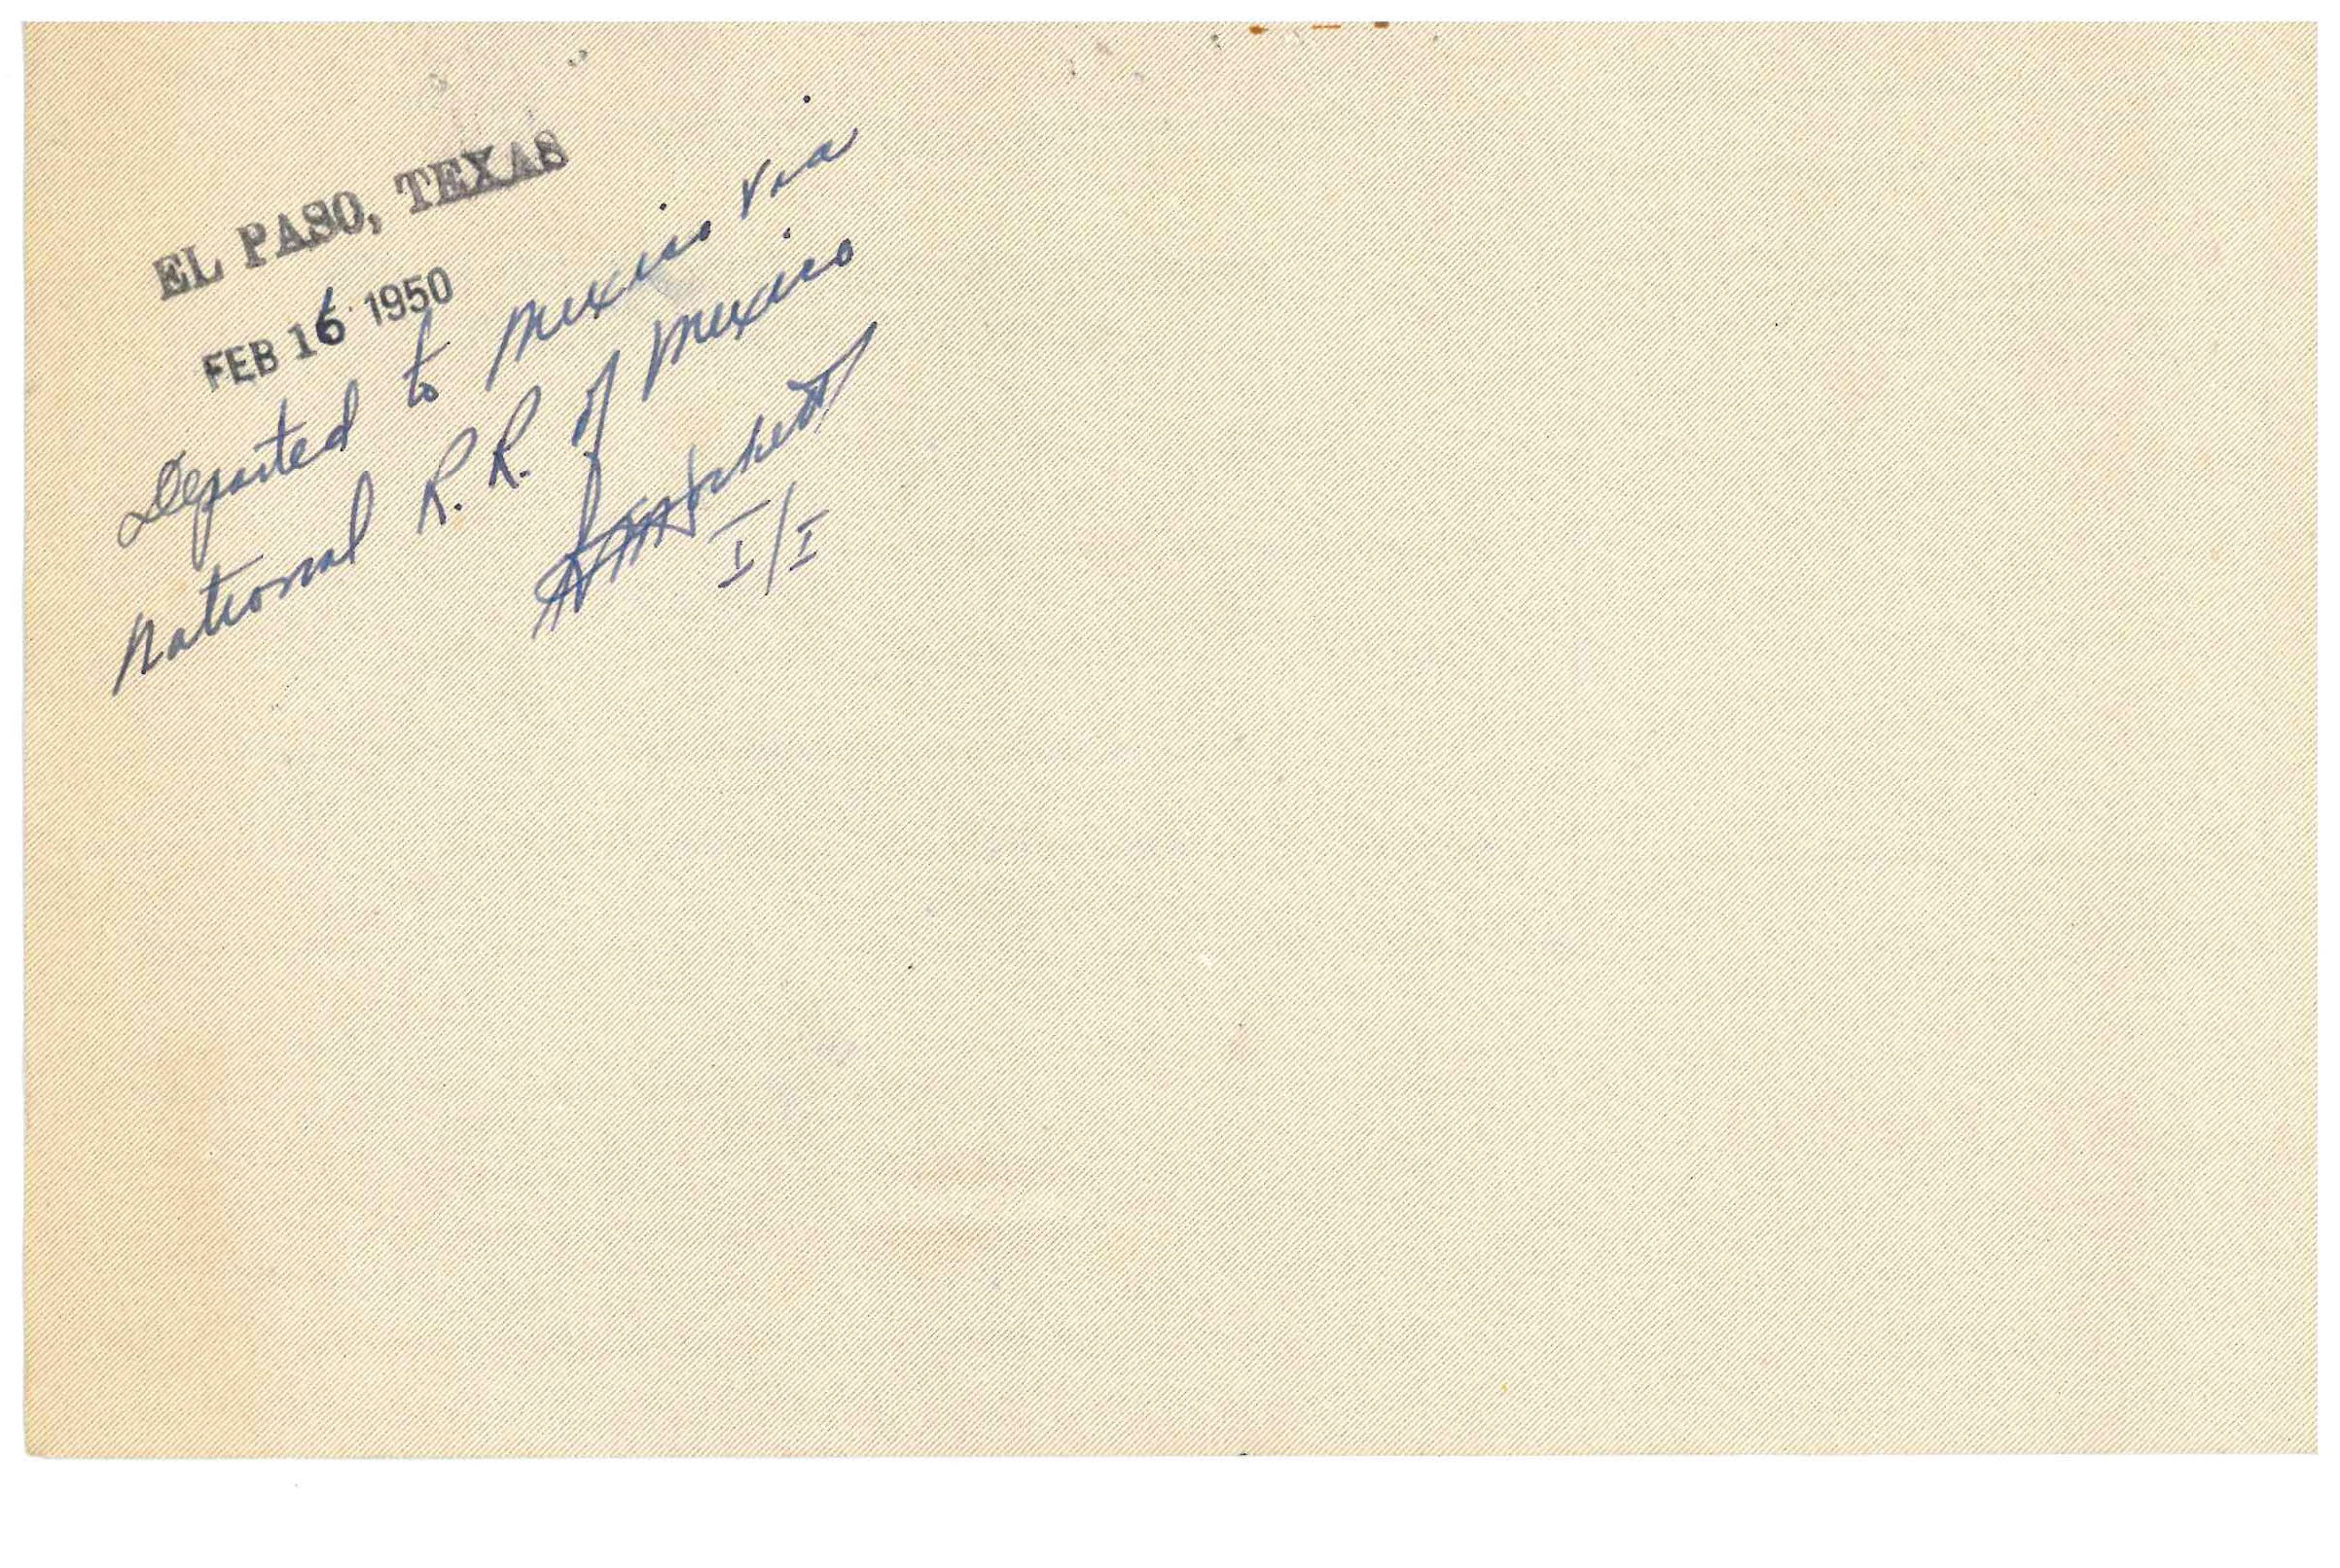 EL PASO, TEXAS
FEB 16 1950
Departed to Mexico via
National R.R. of Mexico
I/I